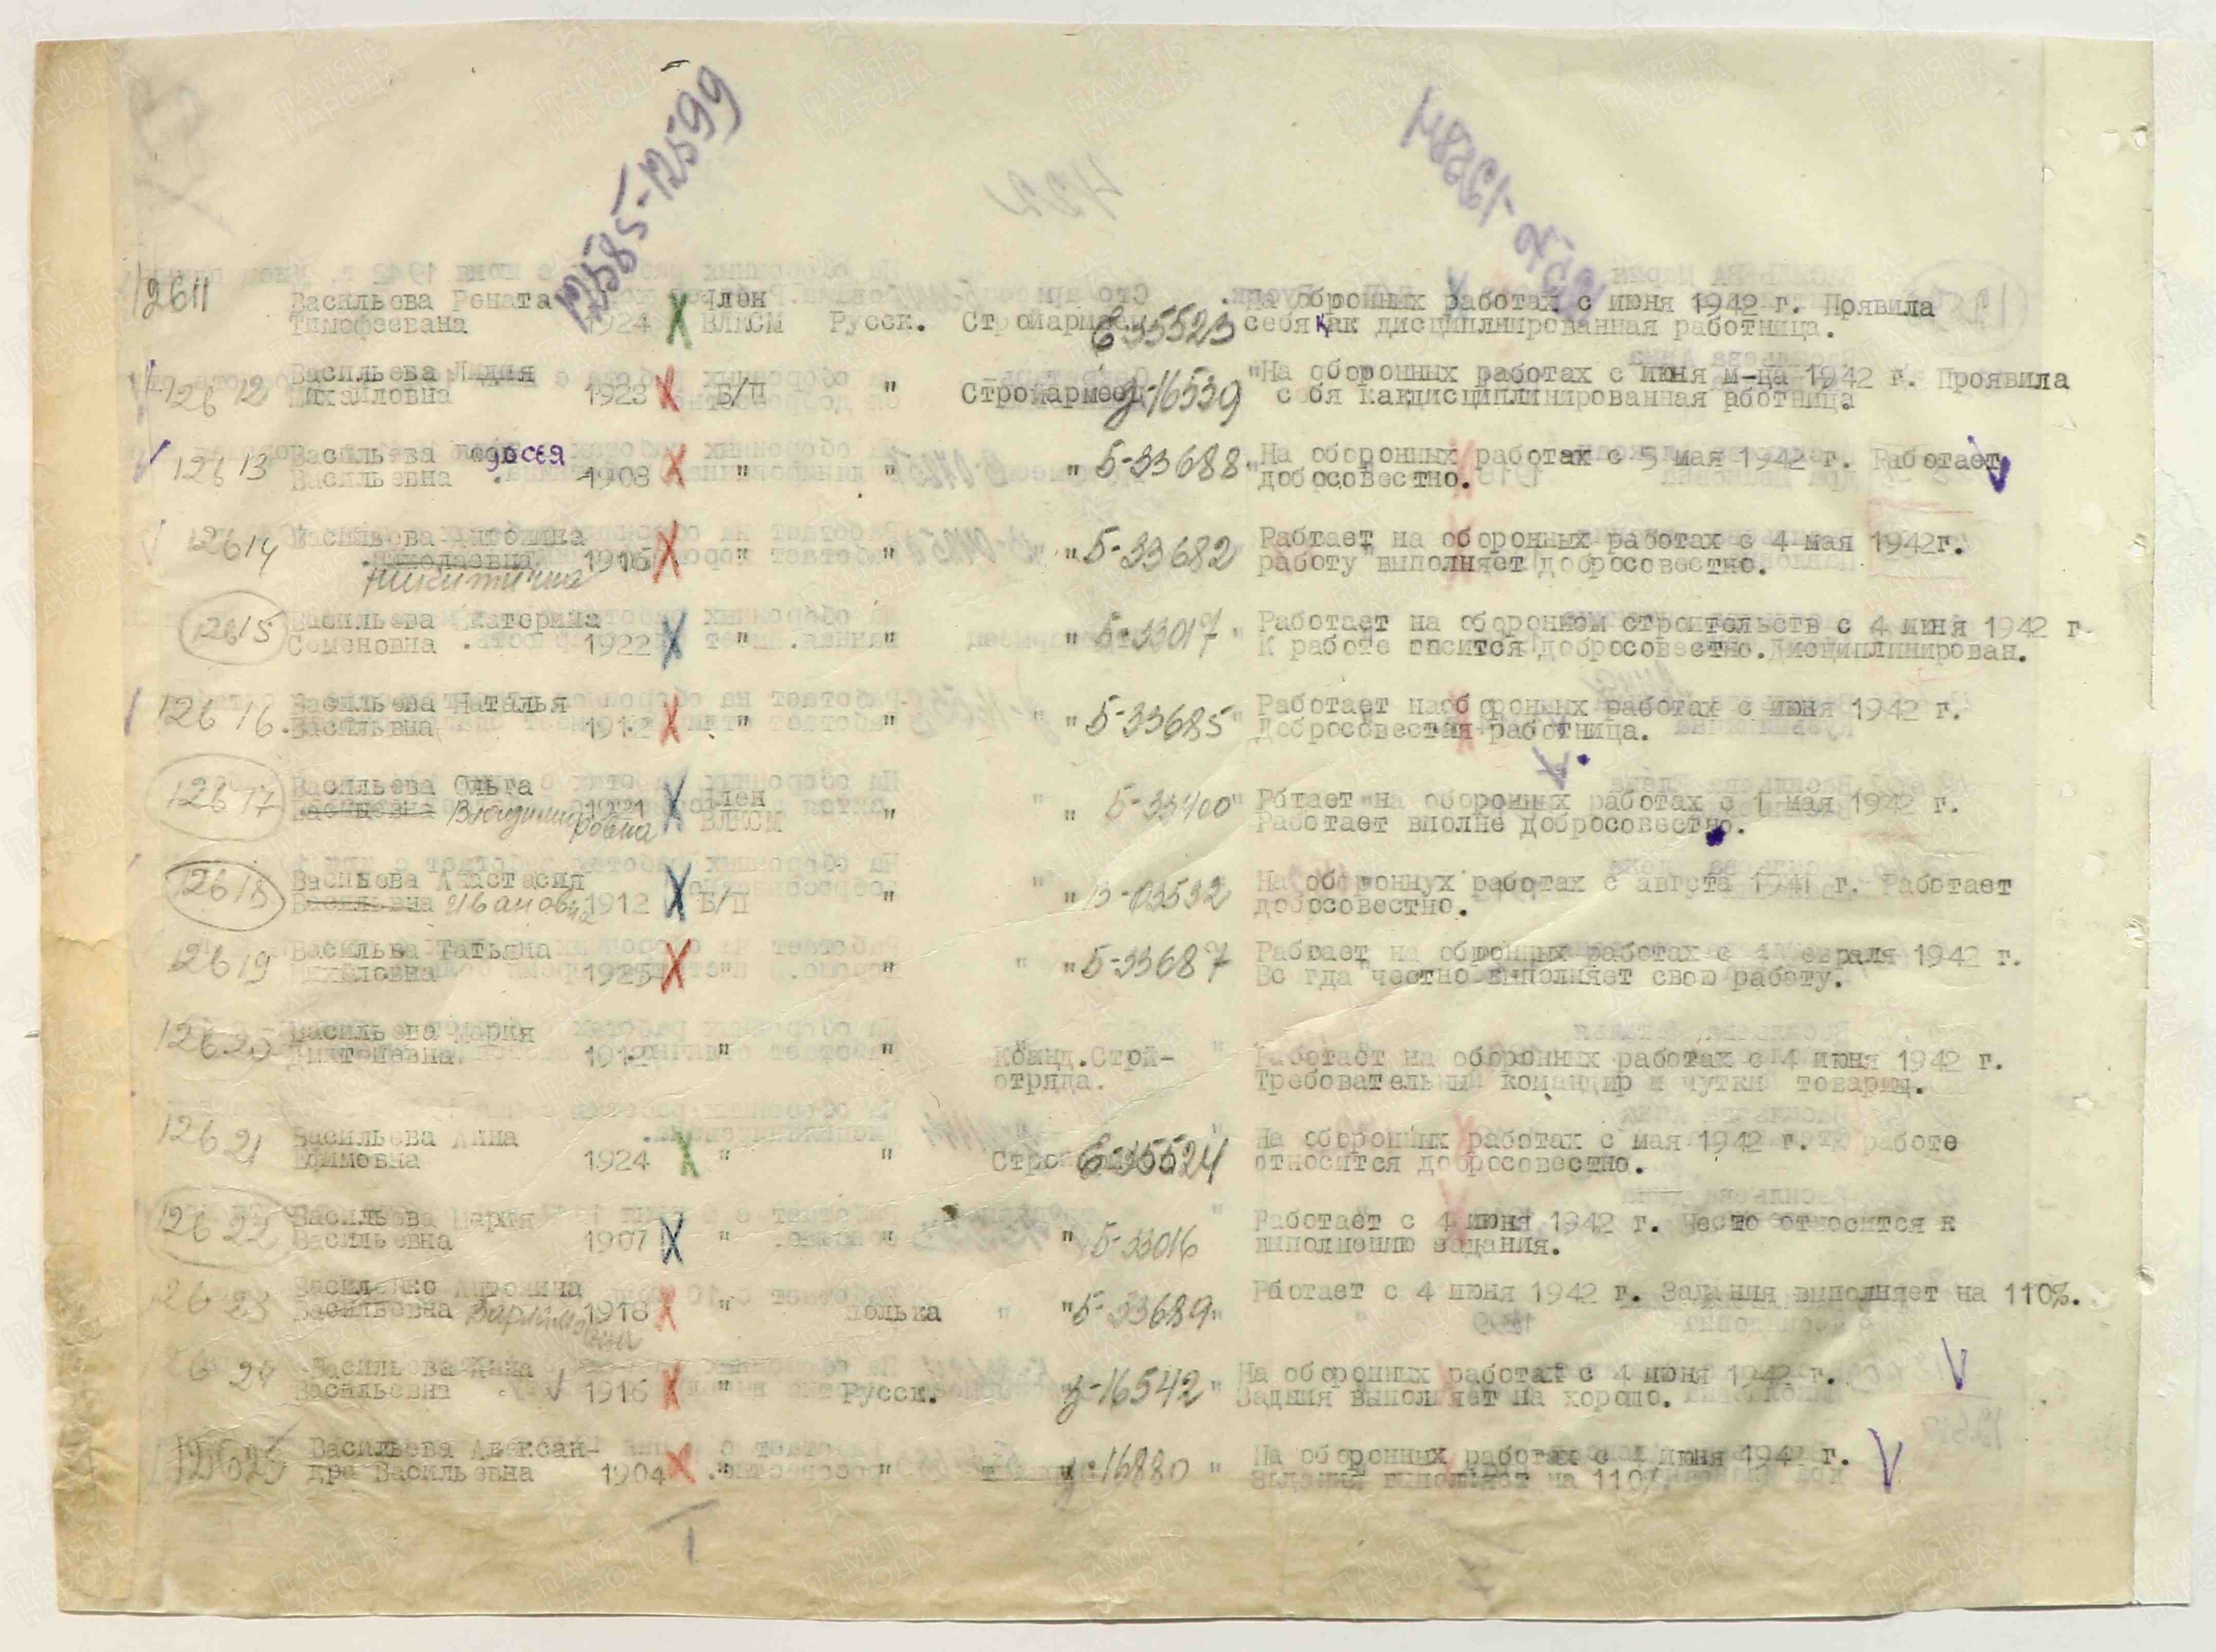 12585-12599
12611 Васильева Рената Член На обронных работах с июня 1942 г. Проявила
Тимофеевана 1924 ВЛКСМ Русск. Стройармеец Е-35523 себя как дисциплнированная работница.
12612 Васильева Лидия "На оборонных работах с июня м-ца 1942 г. Проявила
Михайловна 1923 Б/П " Стройармеец З-16539 себя какдисциплинированная аботница
12613 Васильева Федосея На оборонных работах с 5 мая 1942 г. Работает
Васильевна 1908 " " " Б-33688 добосовестно.
12614 Васильева Антонина Рабтает на оборонных работах с 4 мая 1942г.
Николаевна 1916 " " " Б-33682 работу выполняет добросовестно.
Никитична
12615 Васильева Екатерина Работает на оборонном строительств с 4 июня 1942 г.
Семеновна 1922 " " " Б-33017 " К работе носится добросовестно.Дисциплинирован.
12616 Васильева Наталья Работает наоборонных работах с июня 1942 г.
Васильвна 1912 " " " Б-33685 " Добросовестая работница.
12617 Васильева Ольга Член Рбтает на оборонных работах с 1 мая 1942 г.
Владимировна 1921 ВЛКСМ " " Б-33400 " Работает вполне добросовестно.
12618 Васильева Анастасия На обороннух работах с августа 1941 г. Работает
Васильевна Ивановна 1912 Б/П " " В-03532 добросовестно.
12619 Васильва Татьяна Рабтает на обронных работах с 1 евраля 1942 г.
Михаловна 1925 " " " " Б-33687 Вс гда честно выполняет свою работу.
12620 Васильева Мария Работает на оборонних работах с 4 июня 1942 г.
Дмитриевна 1912 " " Коанд.Строй- Требовательный командир и чутки товарищ.
отряда.
12621 Васильева Анна На оборонных работах с мая 1942 г. К работе
Ефимовна 1924 " " Е-35524 относится добросовестно.
12622 Васильева Мария Работает с 4 июня 1942 г. Често относится к
Васильевна 1907 " " " Б-33016 выполнению задания.
12623 Антонина Рботает с 4 июня 1942 г. Задания выполняет на 110%.
Васильевна 1918 " полька " " Б-33689 "
12624 Васильева Анна На оборонних работах с 4 июня 1942 г.
Васильевна 1916 " Русск. " З-16542 " Задния выполняет на хорошо.
12625 Васильева Алексан- На оборонных работах с 4 июня 1942 г.
дра Васильевна 1904 " " З-16880 " Задание выполняет на 110%.